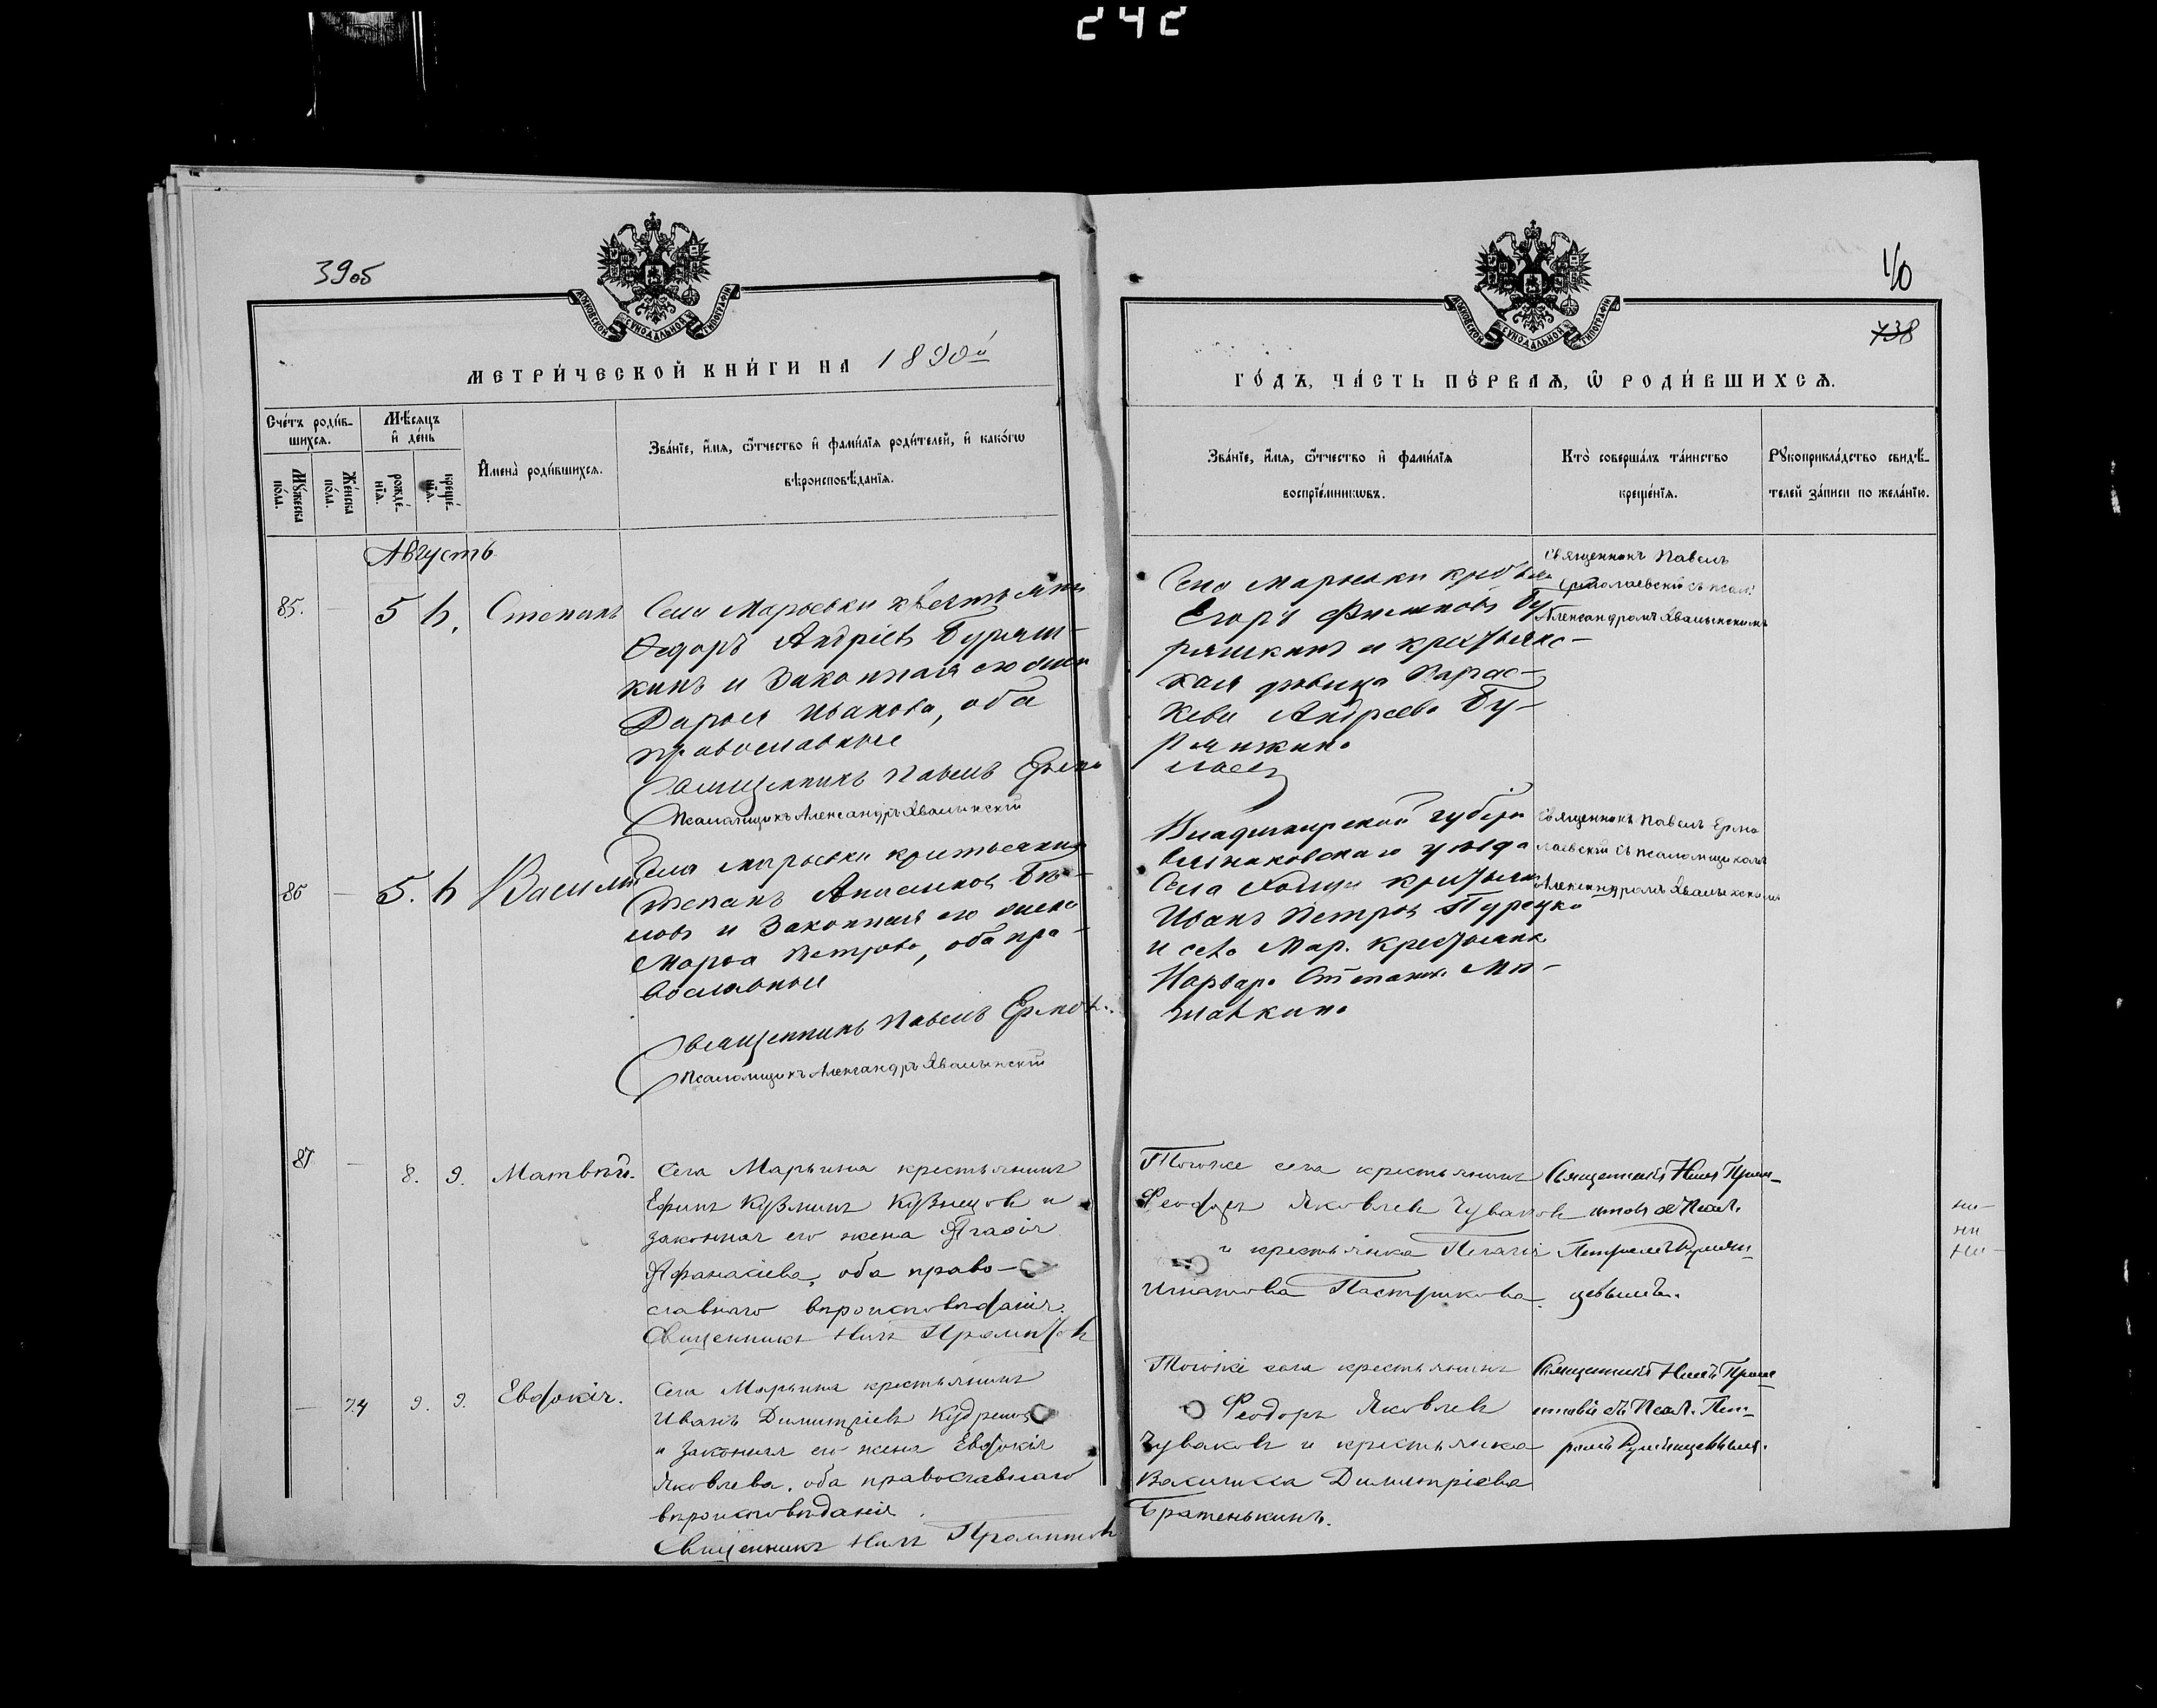 242
39об
40
738
МОСКОВСКОЙ СѴНОДАЛЬНОЙ ТИПОГРАФІИ
МОСКОВСКОЙ СѴНОДАЛЬНОЙ ТИПОГРАФІИ
МЕТРИ́ЧЕСКОЙ КНИ́ГИ НА 1890й
ГО́ДЪ, ЧА́СТЬ ПЕ́РВАѦ, Ѿ РОДИ́ВШИХСѦ.
Сче́тъ роди́в-
шихся.
Мѣ́сяцъ
и҆ де́нь
Му́жеска
по́ла.
Же́нска
по́ла.
рожде́-
нїя.
креще́-
нїя.
И҆мена̀ роди́вшихся.
Зва́нїе, и҆́мя, ѻ҆́тчество и҆ фами́лїя роди́телей, и҆ како́гѡ
вѣроисповѣ́данїя.
Зва́нїе, и҆́мя, ѻ҆́тчество и҆ фами́лїя
воспрїе́мникѡвъ.
Кто̀ соверша́лъ та́инство
креще́нїя.
Рꙋкоприкла́дство свидѣ́-
телей за́писи по жела́нїю.
Августъ
85. — 5 6. Степанъ
Села Марьевки крестьянинъ
Ѳедоръ Андріевъ Буряш-
кинъ и законная его жена
Дарья Иванова, оба
православные
Священникъ Павелъ Ермо
Псаломщикъ Александръ Хвалынскій
Села Марьевки
Егоръ Филиповъ Бу
ряшкинъ и крестьянс-
кая дѣвица Парас-
кева Андреева Бу-
ряшкина
лаев
Священникъ Павелъ
Ермолаевскій съ псал.
Александромъ Хвалынскимъ
86 — 5. 6 Василій
Села Марьевки крестьянинъ
Степанъ
и законная его жена
Марѳа Петрова, оба пра-
вославные
Священникъ Павелъ Ермол.
Псаломщикъ Александръ Хвалынскій
Владимирской губерн
Вязниковскаго уѣзда
Села
Иванъ Петровъ
и села Мар. крестьянка
Варвара Степанова
Священникъ Павелъ Ермо
лаевскій съ псаломщикомъ
Александромъ Хвалынскимъ
87 — 8. 9. Матвѣй.
Села Марьина крестьянинъ
Ефимъ Кузминъ Кузнецовъ и
законная его жена Агафія
Аѳанасіева, оба право-
славнаго вѣроисповѣданія.
Священникъ Нилъ
Тогоже села крестьянинъ
Ѳеодоръ Яковлевъ Чуваковъ
и крестьянка Пелагія
Игнатова Пастушкова.
Священникъ Нилъ
съ Псал.
Петромъ Румян-
цевымъ.
— 74 9. 9. Евдокія.
Села Марьина крестьянинъ
Иванъ Димитріевъ
и законная его жена Евдокія
Яковлева, оба православнаго
вѣроисповѣданія.
Священникъ Нилъ
Тогоже села крестьянинъ
Ѳеодоръ Яковлевъ
Чуваковъ и крестьянка
Василиса Димитріева
Братенькинъ.
Священникъ Нилъ
съ Псал. Пет-
ромъ Румянцевымъ.